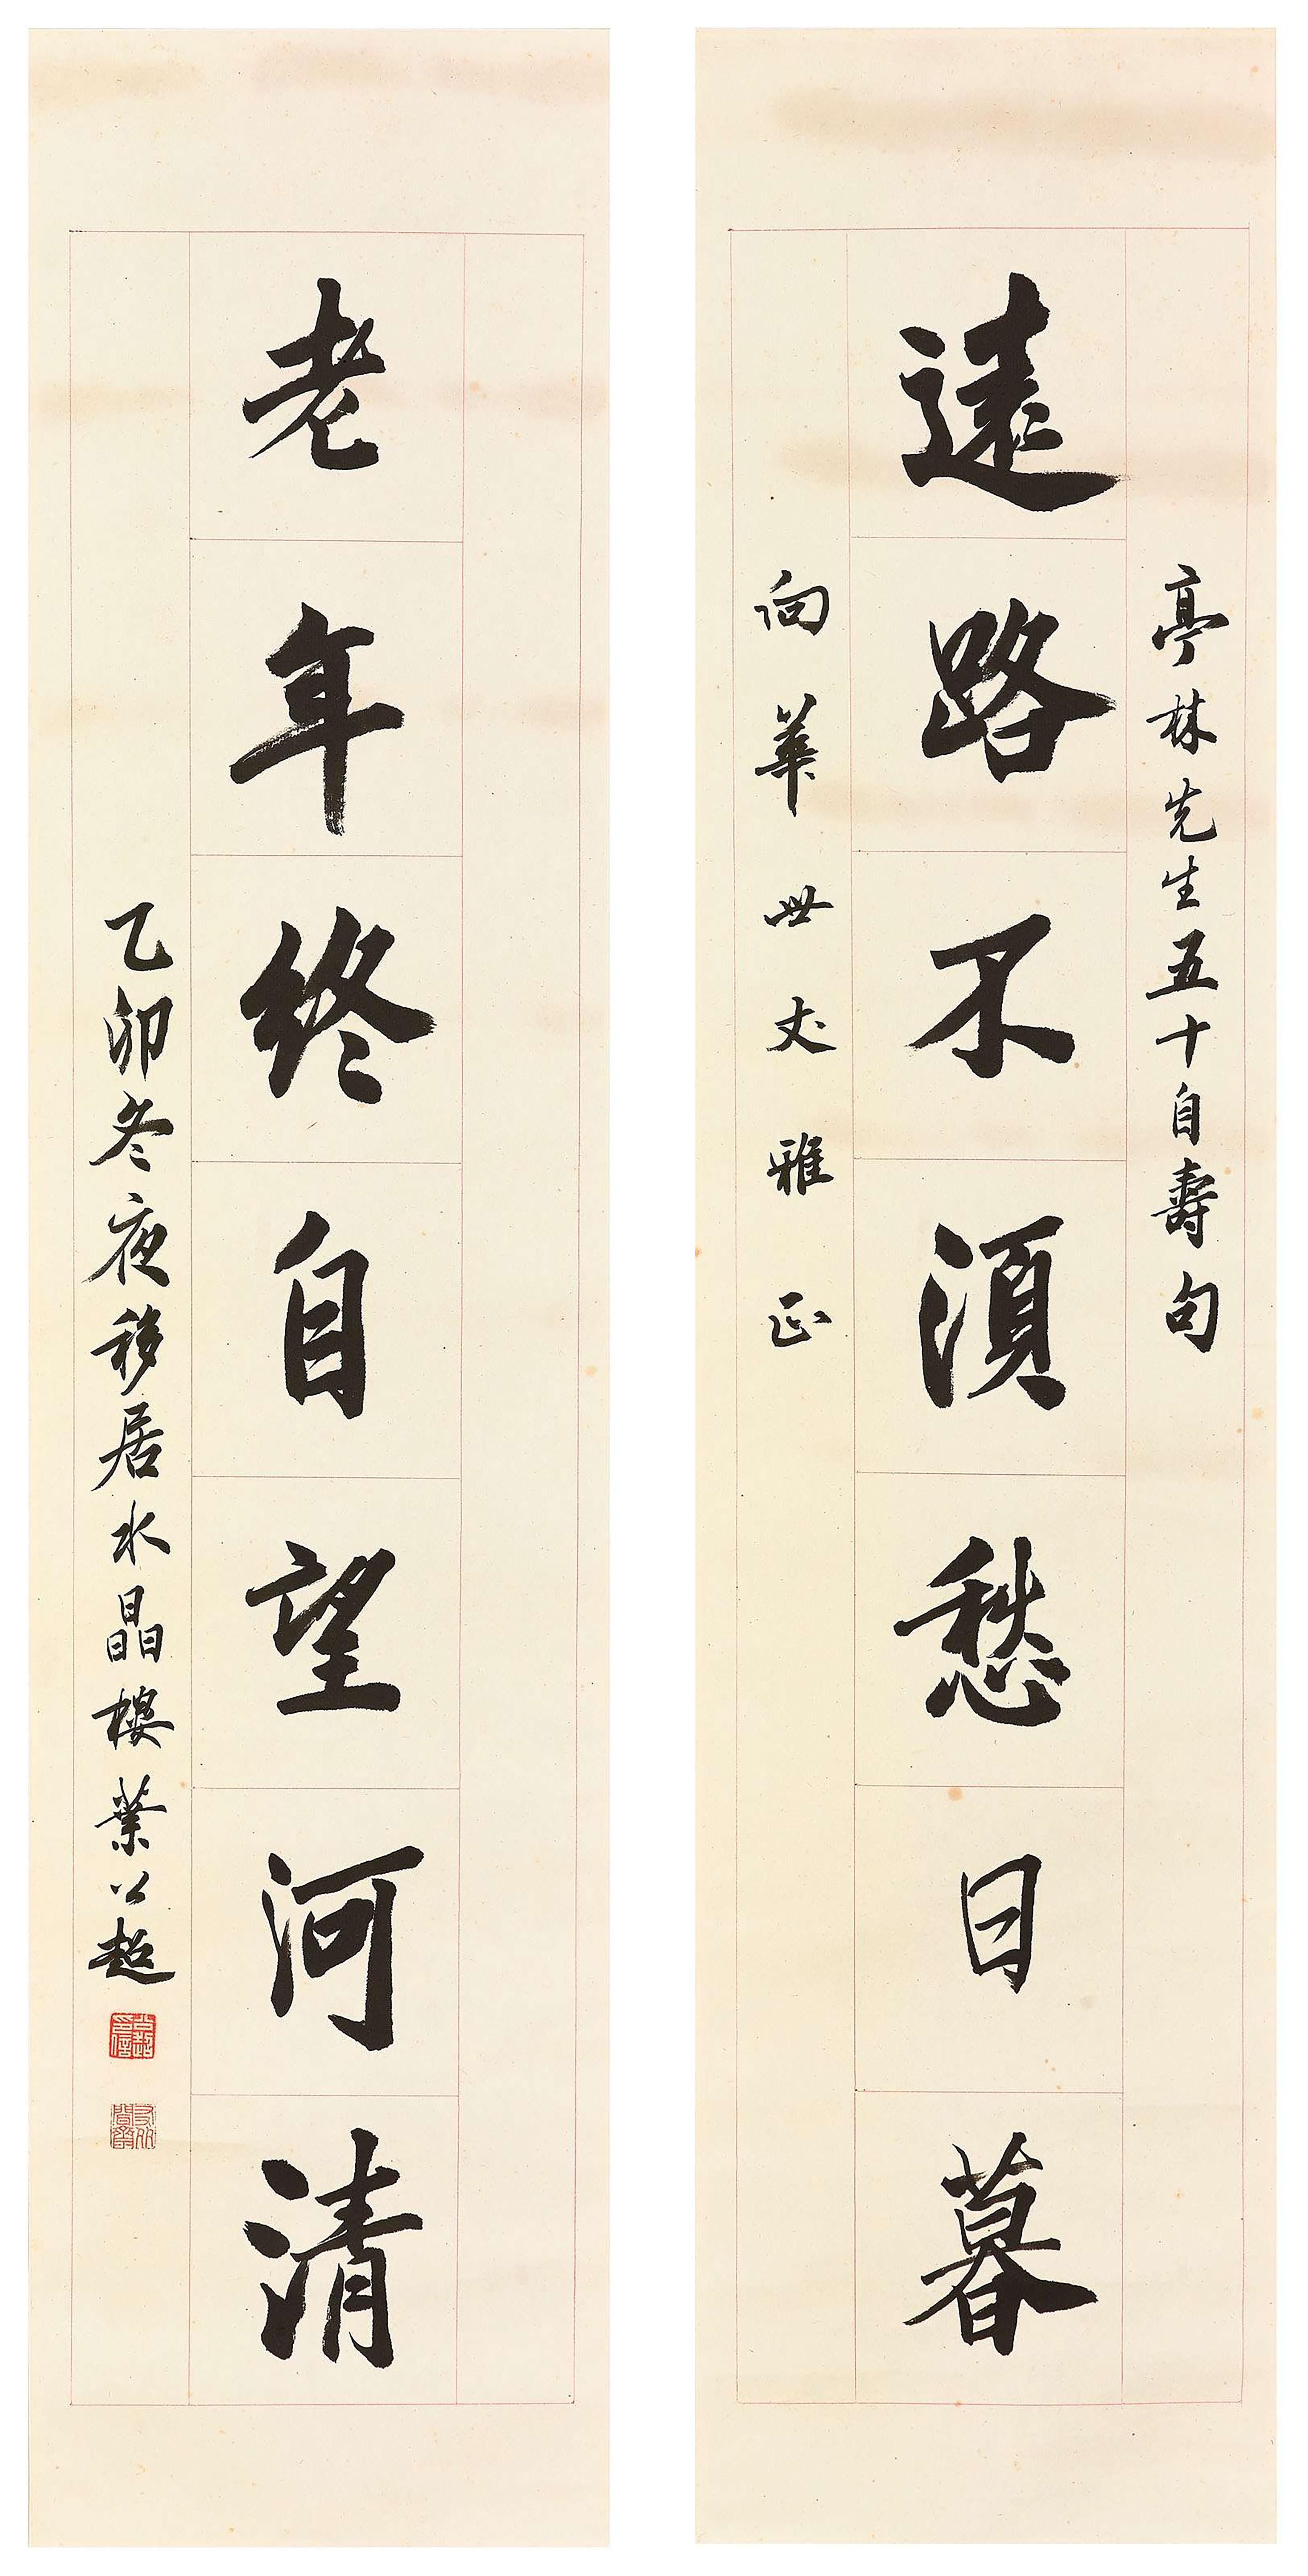 亭林先生五十自壽句
遠路不須愁日暮
向華世丈雅正
老年終自望河清
乙卯冬夜移居水晶樓葉公超
公超印信